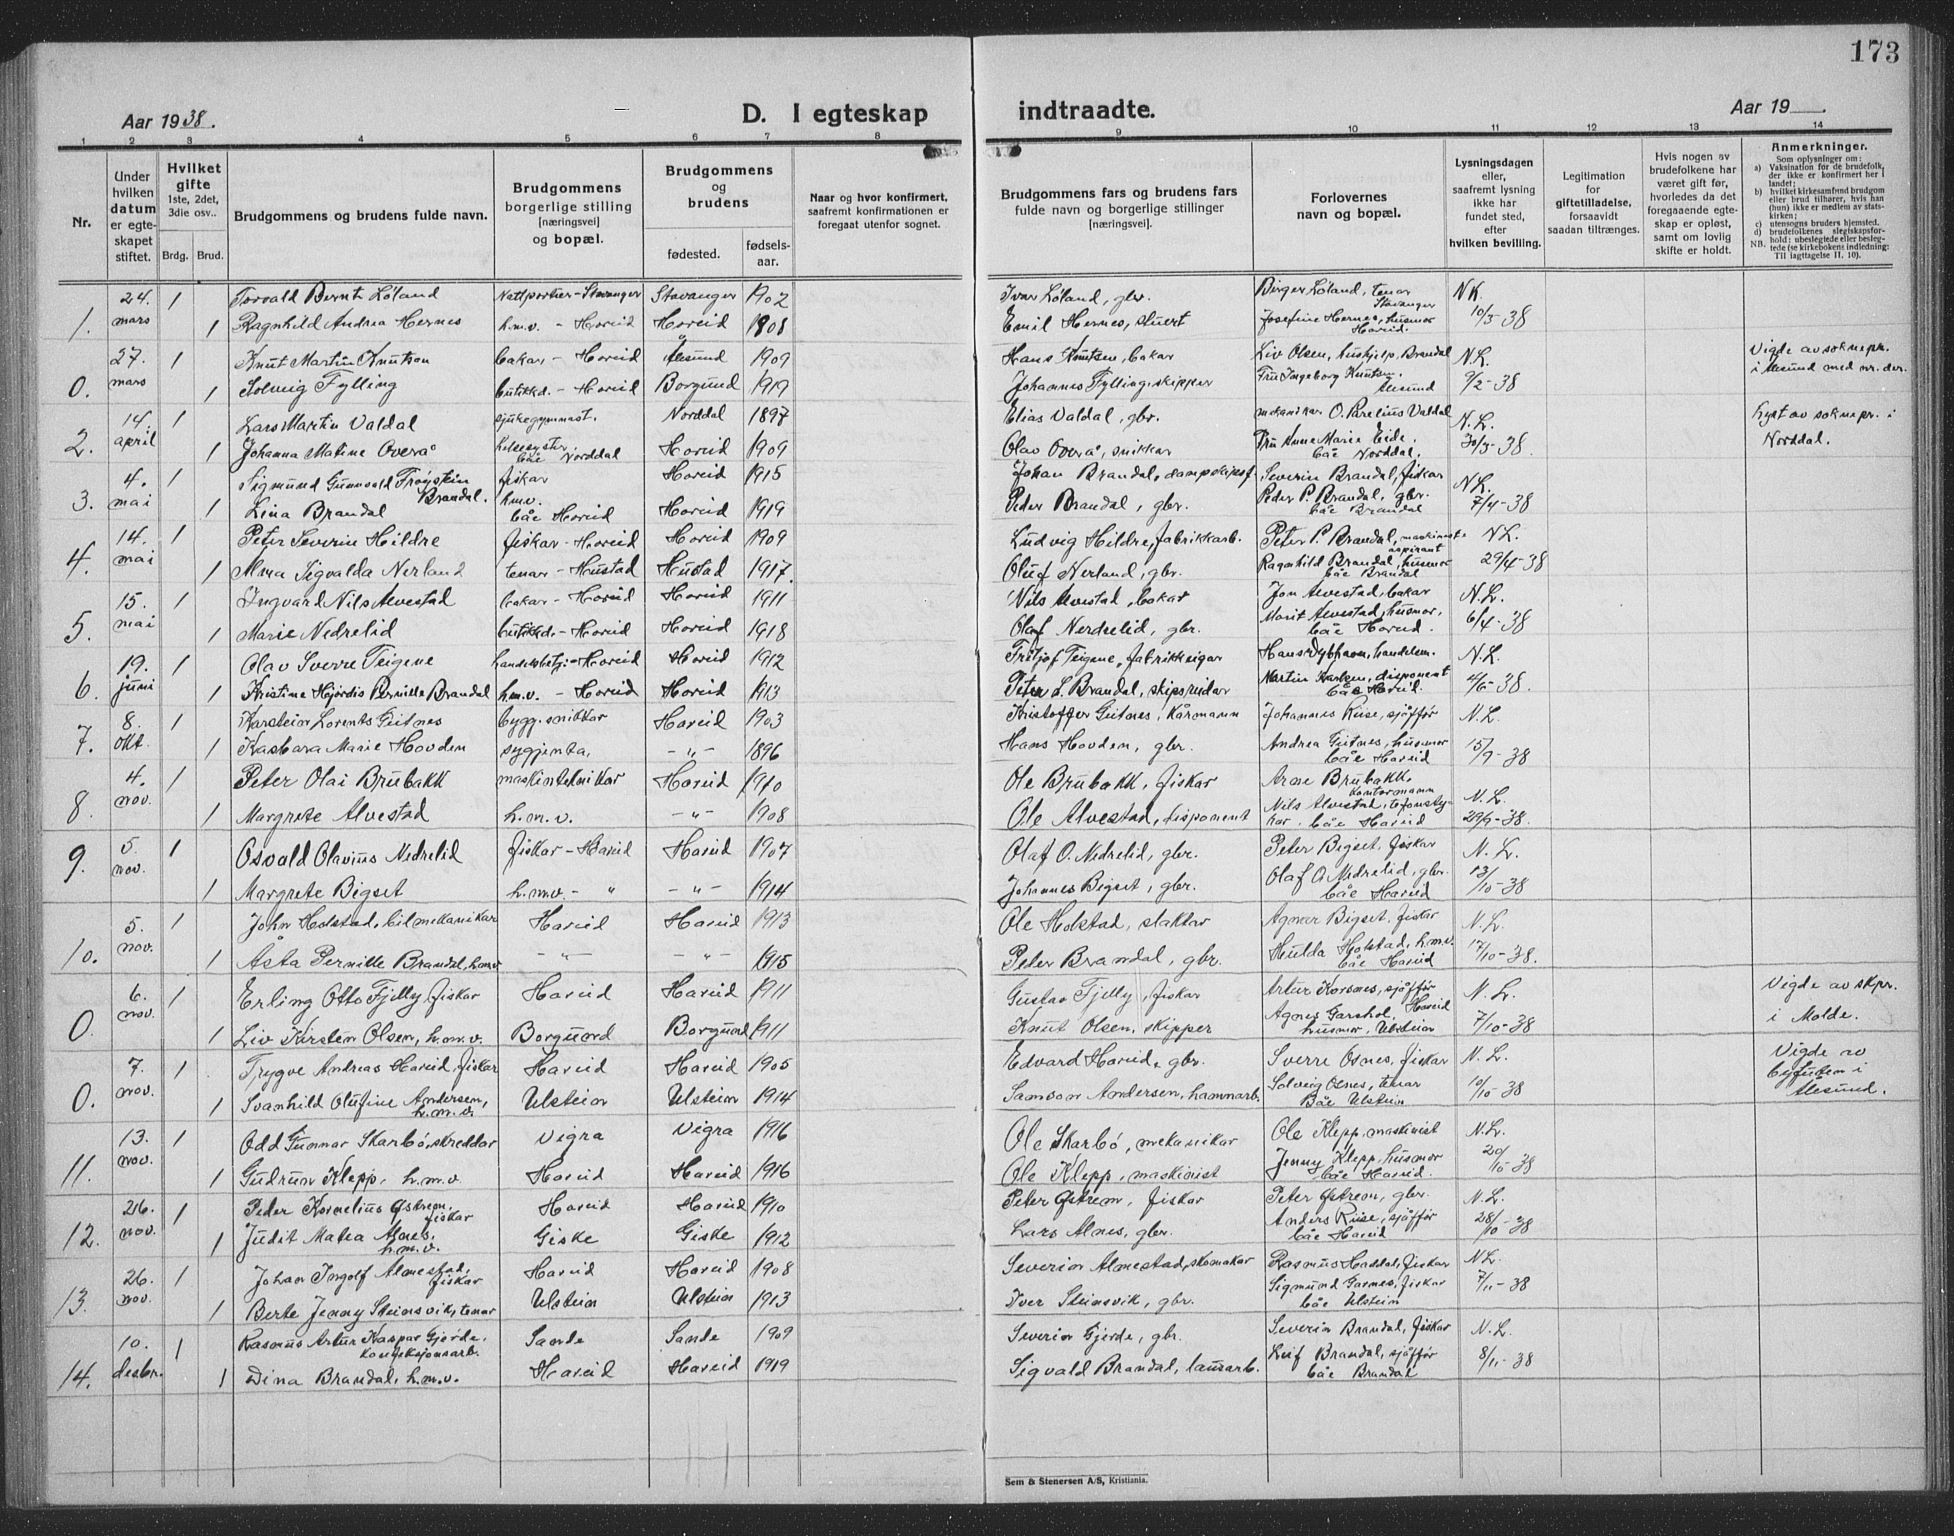 173
Aar 1938.
D. I egteskap
indtraadte.
Aar 19
1 2 3 4 5 6 7 8 9 10 11 12 13 14
Nr.
Under hvilken datum er egteskapet stiftet.
Hvilket gifte 1ste, 2det, 3die osv..
Brdg. Brud.
Brudgommens og brudens fulde navn.
Brudgommens borgerlige stilling [næringsvei] og bopæl.
Brudgommens og brudens
fødested.
fødselsaar.
Naar og hvor konfirmert, saafremt konfirmationen er foregaat utenfor sognet.
Brudgommens fars og brudens fars fulde navn og borgerlige stillinger [næringsvei].
Forlovernes navn og bopæl.
Lysningsdagen eller, saafremt lysning ikke har fundet sted, efter hvilken bevilling.
Legitimation for giftetilladelse, forsaavidt saadan tiltrænges.
Hvis nogen av brudefolkene har været gift før, hvorledes da det foregaaende egteskap er opløst, samt om lovlig skifte er holdt.
Anmerkninger.
Som oplysninger om:
a) Vaksination for de brudefolk, der ikke er konfirmert her i landet;
b) hvilket kirkesamfund brudgom eller brud tilhører, hvis han (hun) ikke er medlem av statskirken;
c) utensogns bruders hjemsted.
d) brudefolkenes slegtskapsforhold: ubeslegtede eller beslegtede (se kirkebokens indledning: Til iagttagelse II. 10).
NB.
1. 24. mars 1 Torvald Bernt Løland Nattportier - Stavanger Stavanger 1902 Ivar Løland, gbr. Birger Løland, tenar Stavanger N.K.
1 Ragnhild Andrea Hernes h.m.v. - Hareid Hareid 1908 Emil Hernes, stuert Josefine Hernes, husmor Hareid. 10/3-38
0. 27. mars 1 Knut Martin Knutsen bakar - Hareid Ålesund 1909 Hans Knutsen, bakar Liv Olsen, hushjelp, Brandal N.L. Vigde av soknepr.
1 Solveig Fylling butikkd. - Hareid Borgund 1919 Johannes Fylling, skipper Fru Ingeborg Knutsen Ålesund 9/2-38 i Ålesund med nr. der.
2. 14. april 1 Lars Martin Valdal sjukegymnast. Norddal 1897 Elias Valdal, gbr. mekanikar O. Parelius Valdal N.L. Lyst av soknepr. i
1 Johanna Matine Overå helsesyster. båe Norddal Hareid 1909 Olav Overå, snikkar Fru Anne Marie Eide. båe Norddal. 30/3-38. Norddal.
3. 4. mai 1 Sigmund Gunnvald Frøystein Brandal. fiskar Hareid 1915 Johan Brandal, dampskipsf. Severin Brandal, fiskar N.L.
1 Lina Brandal h.m.v. båe Hareid Hareid 1919 Peder Brandal, gbr. Peder P. Brandal, gbr. båe Brandal 7/4-38
4. 14. mai 1 Peter Severin Hildre fiskar - Hareid Hareid 1909 Ludvig Hildre, fabrikkarb. Peter P. Brandal, maskinistaspirant N.L.
1 Alma Sigvalda Nerland tenar - Hustad Hustad 1917. Oluf Nerland, gbr. Ragnhild Brandal, husmor båe Brandal 29/4-38
5. 15. mai 1 Ingvard Nils Alvestad bakar - Hareid Hareid 1911 Nils Alvestad, bakar Jon Alvestad, bakar N.L.
1 Marie Nedrelid butikkd. - Hareid Hareid 1918 Olaf Nerdrelid, gbr. Marit Alvestad, husmor, båe Hareid. 6/4-38
6. 19. juni 1 Olav Sverre Teigene handelsbetj. - Hareid Hareid 1912 Fritjof Teigene, fabrikkeigar Hans Dybhavn, handelsm. N.L.
1 Kristine Hjørdis Pernille Brandal h.m.v. - Hareid Hareid 1913 Peter L. Brandal, skipsreidar Martin Karlsen, disponent båe Hareid. 4/6-38.
7. 8. okt. 1 Karstein Lorents Geitnes bygg. snikkar Hareid 1903 Kristoffer Geitnes, kårmann Johannes Riise, sjåffør N.L.
1 Kasbara Marie Hovden sygjenta, -"- 1896 Hans Hovden, gbr. Andrea Geitnes, husmor båe Hareid 15/9-38
8. 4. nov. 1 Peter Olai Brubakk maskinteknikar Hareid 1910 Ole Brubakk, fiskar Arne Brubakk, kontormann
1 Margrete Alvestad h.m.v. -"- 1908 Ole Alvestad, disponent Nils Alvestad, båe Hareid N.L. 29/9-38.
9. 5. nov. 1 Osvald Olavius Nedrelid fiskar - Hareid Hareid 1907 Olaf O. Nedrelid, gbr. Peter Bigset, fiskar N.L.
1 Margrete Bigset h.m.v. - " -"- 1914 Johannes Bigset, gbr. Olaf O. Nedrelid, gbr. båe Hareid 13/10-38
10. 5. nov. 1 John Holstad, bilmekanikar Hareid Hareid 1913 Ole Holstad, slaktar Agnar Bigset, fiskar N.L.
1 Åsta Pernille Brandal, h.m.v. -"- -"- 1915 Peter Brandal, gbr. Hulda Holstad, h.m.v. båe Hareid 17/10-38.
0. 6. nov. 1 Erling Otto Fjelly, fiskar Hareid Hareid 1911 Gustav Fjelly, fiskar Artur Korsnes, sjåffør Hareid N.L. Vigde av skpr.
1 Liv Kirsten Olsen, h.m.v. Borgund Borgund 1911 Knut Olsen, skipper Agnes Garshol, husmor, Ulstein 7/10-38 i Molde.
0. 7. nov. 1 Trygve Andreas Hareid, fiskar Hareid Hareid 1905 Edvard Hareid, gbr. Sverre Osnes, fiskar N.L. Vigde av
1 Svanhild Olufine Andersen, h.m.v. Ulstein Ulstein 1914 Samson Andersen, hamnarb. Solveig Osnes, tenar Båe Ulstein 10/10-38 byfuten i Ålesund.
11. 13. nov. 1 Odd Gunnar Skarbø, skreddar Vigra Vigra 1916 Ole Skarbø, mekanikar Ole Klepp, maskinist N.L.
1 Gudrun Klepp, h.m.v. Hareid Hareid 1916 Ole Klepp, maskinist Jenny Klepp, husmor båe Hareid. 20/10-38
12. 26. nov. 1 Peder Kornelius Østrem, fiskar Hareid Hareid 1910 Peter Østrem, fiskar Peter Østrem, gbr. N.L.
1 Judit Matea Alnes, h.m.v. Giske Giske 1912 Lars Alnes, gbr. Anders Riise, sjåffør båe Hareid 28/10-38
13. 26. nov. 1 Johan Ingolf Almestad, fiskar Hareid Hareid 1908 Severin Almestad, skomakar Rasmus Haddal, fiskar N.L.
1 Berte Jenny Steinsvik, tenar Ulstein Ulstein 1913 Iver Steinsvik, gbr. Sigmund Garnes, fiskar båe Ulstein 7/11-38
14. 10. desbr. 1 Rasmus Artur Kaspar Gjerde, konfeksjonsarb. Sande Sande 1909 Severin Gjerde, gbr. Severin Brandal, fiskar N.L.
1 Dina Brandal, h.m.v. Hareid Hareid 1919 Sigvald Brandal, lausarb. Leif Brandal, sjåffør båe Brandal 8/11-38
Sem & Stenersen A/S, Kristiania.